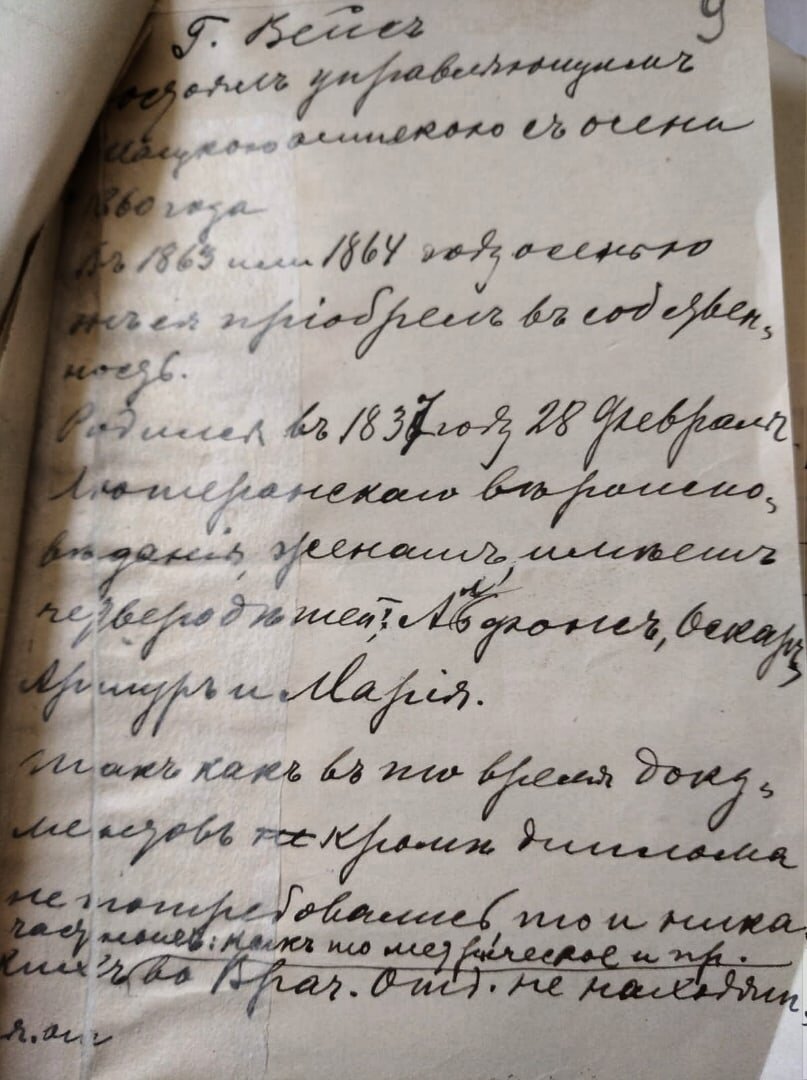 9
Г. Вейсъ
состоялъ управляющимъ
аптекою съ осени
1860 года
Въ 1863 или 1864 году осенью
онъ ея пріобрелъ въ собствен-
ность.
Родился въ 1837 году 28 Февраля.
Лютеранскаго вѣроиспо-
вѣданія, женатъ, имѣетъ
четверо дѣтей: Альфонсъ, Оскаръ,
Артуръ и Марія.
Такъ какъ въ то время доку-
ментовъ кромѣ диплома
не потребовались, то и ника-
частности: какъ то метрическое и пр.
кихъ во Врач. Отд. не находят-
ся.